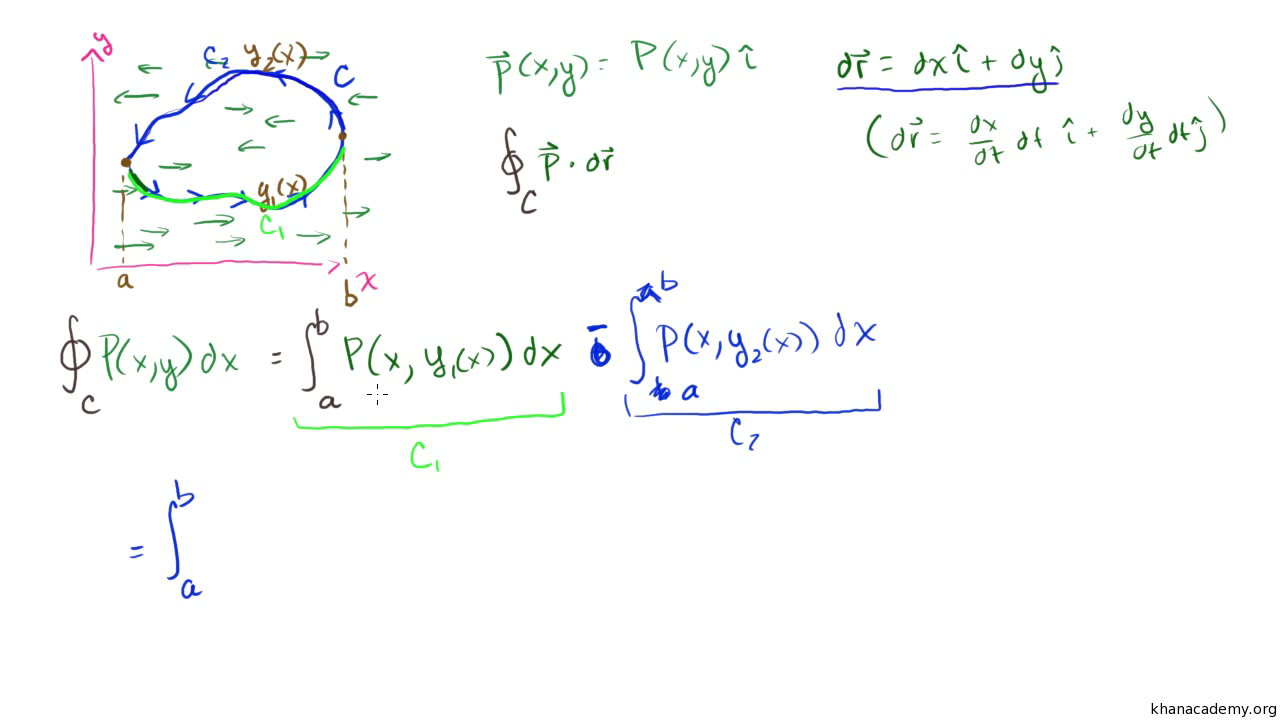 y
C₂ y₂(x)
C
y₁(x)
C₁
a
b
x
P⃗(x,y) = P(x,y) î
∮_C P⃗ · dr⃗
dr⃗ = dx î + dy ĵ
(dr⃗ = dx/dt dt î + dy/dt dt ĵ)
∮_C P(x,y) dx = ∫_a^b P(x, y₁(x)) dx - ∫_a^b P(x, y₂(x)) dx
C₁
C₂
= ∫_a^b
khanacademy.org